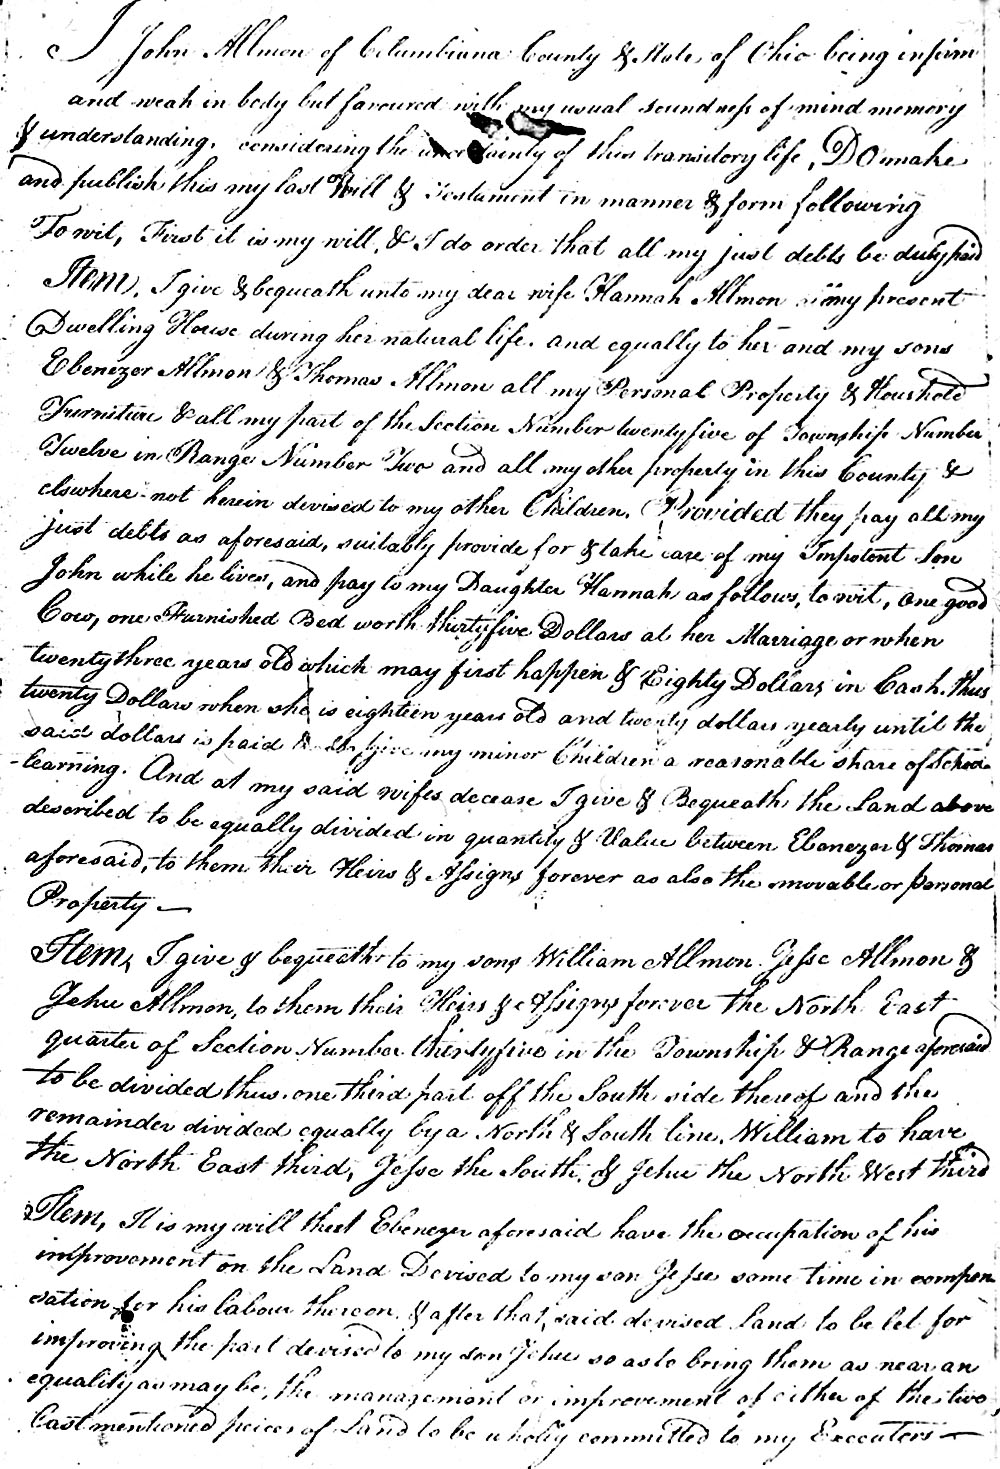 I John Allmon of Columbiana County & State, of Ohio being infirm
and weak in body but favoured with my usual soundness of mind memory
& understanding, considering the uncertainty of this transitory life, Do make
and publish this my last Will & Testament in manner & form following
To wit, First it is my will, & I do order that all my just debts be duly paid
Item, I give & bequeath unto my dear wife Hannah Allmon my present
Dwelling House during her natural life. and equally to her and my sons
Ebenezer Allmon & Thomas Allmon all my Personal Property & Houshold
Furniture & all my part of the Section Number twenty five of Township Number
Twelve in Range Number Two and all my other property in this County &
elswhere not herein devised to my other Children, Provided they pay all my
just debts as aforesaid, suitably provide for & take care of my Impotent Son
John while he lives, and pay to my Daughter Hannah as follows, to wit, one good
Cow, one Furnished Bed worth thirty five Dollars at her Marriage or when
twenty three years old which may first happen & Eighty Dollars in Cash, thus
twenty Dollars when she is eighteen years old and twenty dollars yearly until the
said dollars is paid & give my minor Children a reasonable share of School
-learning. And at my said wifes decease I give & Bequeath the Land above
described to be equally divided in quantity & Value between Ebenezer & Thomas
aforesaid, to them their Heirs & Assigns forever as also the movable or personal
Property —
Item, I give & bequeath to my sons William Allmon Jesse Allmon &
Jehu Allmon, to them their Heirs & Assigns forever the North East
quarter of Section Number thirty five in the Township & Range aforesaid
to be divided thus, one third part off the South side thereof and the
remainder divided equally by a North & South line, William to have
the North East third, Jesse the South, & Jehu the North West third
Item, It is my will that Ebenezer aforesaid have the occupation of his
improvement on the Land Devised to my son Jesse some time in compen
sation for his labour thereon & after that, said devised Land to be let for
improving the part devised to my son Jehu so as to bring them as near an
equality as may be, the management or improvement of either of the two
last mentioned peices of Land to be wholly committed to my Executors —